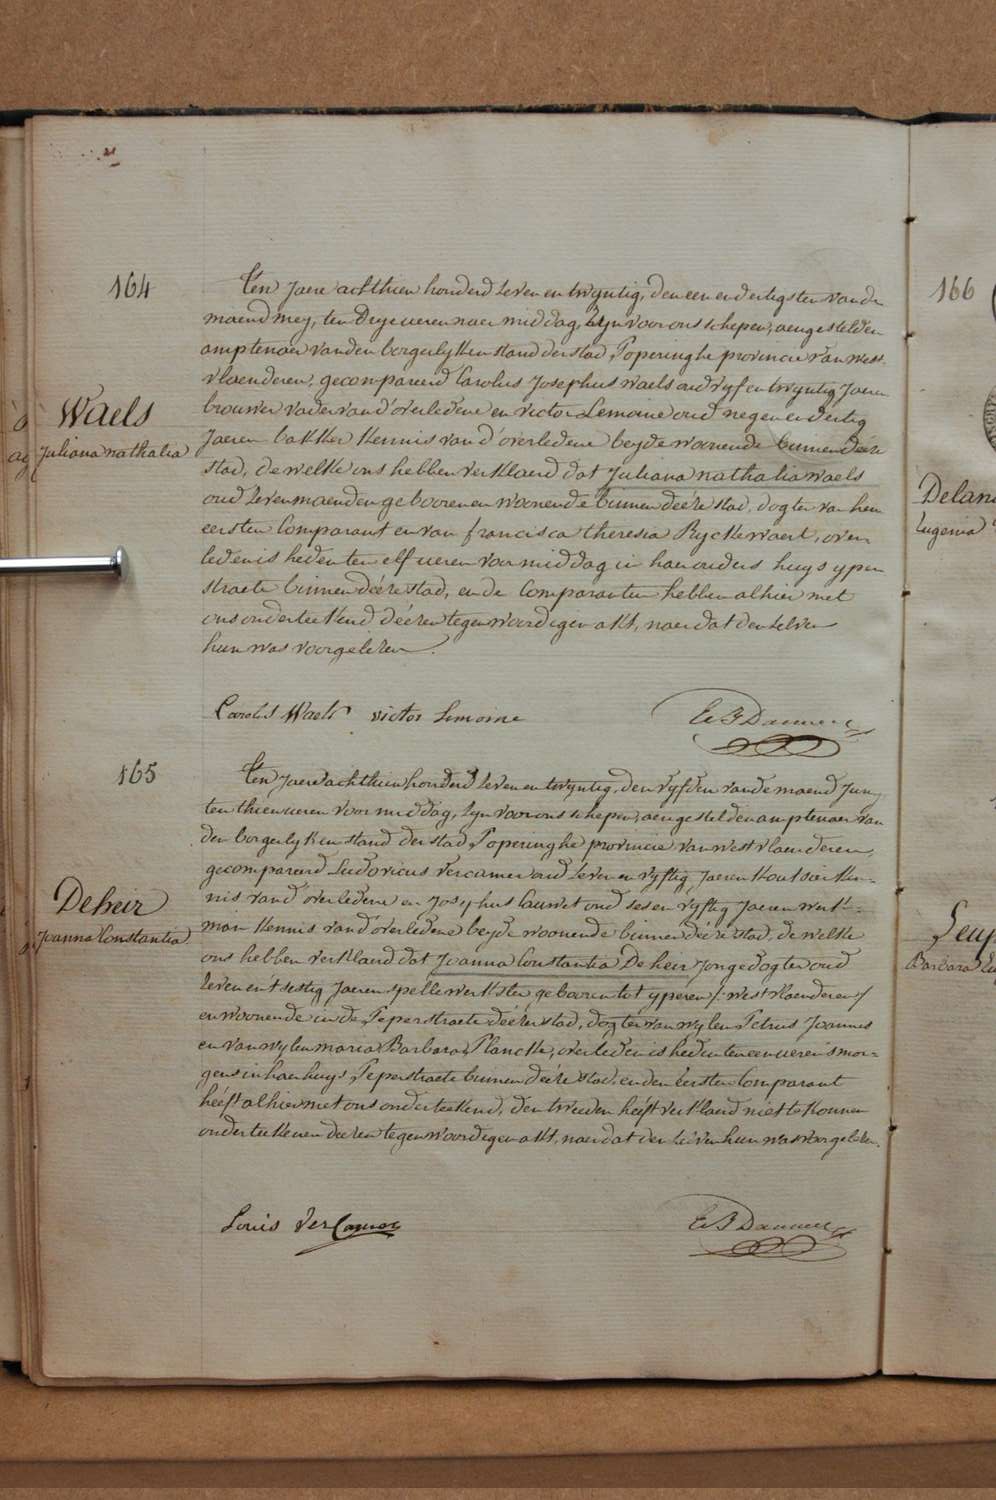 164
Ten Jaere achthien honderd seven en twyntig, den een en dertigsten van de
maend mey, ten drye ueren naer middag, zyn voor ons schepen, aengestelden
amptenaer van den borgerlyken stand der stad Poperinghe provincie van west-
vlaenderen, gecompareerd Carolus Josephus Waels oud vyf en twyntig Jaeren
brouwer vader van d'overledene en victor Lemoine oud negen en dertig
Waels
Juliana nathalia
Jaeren bakker kennis van d'overledene beyde woonende binnen deéze
stad, de welke ons hebben verklaerd dat Juliana nathalia waels
oud zeven maenden gebooren en woonende binnen deéze stad, dogter van hem
eersten Comparant en van francisca theresia Ryckewaert, over-
leden is heden ten elf ueren voor middag in haer ouders huys yper
straete binnen deéze stad, en de Comparanten hebben alhier met
ons onderteekend deézen tegenwoordigen akt, naer dat den zelven
hun was voorgelezen.
Carolus Waels victor Lemoine
165
Ten Jaere achthien honderd zeven en twyntig, den vyfden van de maend Juny
ten thien ueren voor middag, zyn voor ons schepen, aengestelden amptenaer van
den borgerlyken stand der stad Poperinghe provincie van westvlaenderen,
gecompareerd Ludovicus vercamer oud zeven en vyftig Jaeren Koutsier ken-
nis van d'overledene en Josephus Cauwet oud ses en vyftig Jaeren werk-
Deheir
Joanna Constantia
man kennis van d'overledene beyde woonende binnen deéze stad, de welke
ons hebben verklaerd dat Joanna Constantia De heir Jonge dogter oud
zeven en t'sestig Jaeren spellewerkster gebooren tot yperen /: westvlaenderen /
en woonende in de Peperstraete deézer stad, dogter van wylen Petrus Joannes
en van wylen maria Barbara Plancke, overleden is heden ten een ueren s'mor-
gens in haer huys Peperstraete binnen deéze stad, en den eersten Comparant
heéft alhier met ons onderteekend, den tweeden heéft verklaerd niet te konnen
onderteekenen deézen tegenwoordigen akt, naer dat den zelven hun was voorgelezen.
Louis Vercamer
166
Eugenia
Barbara